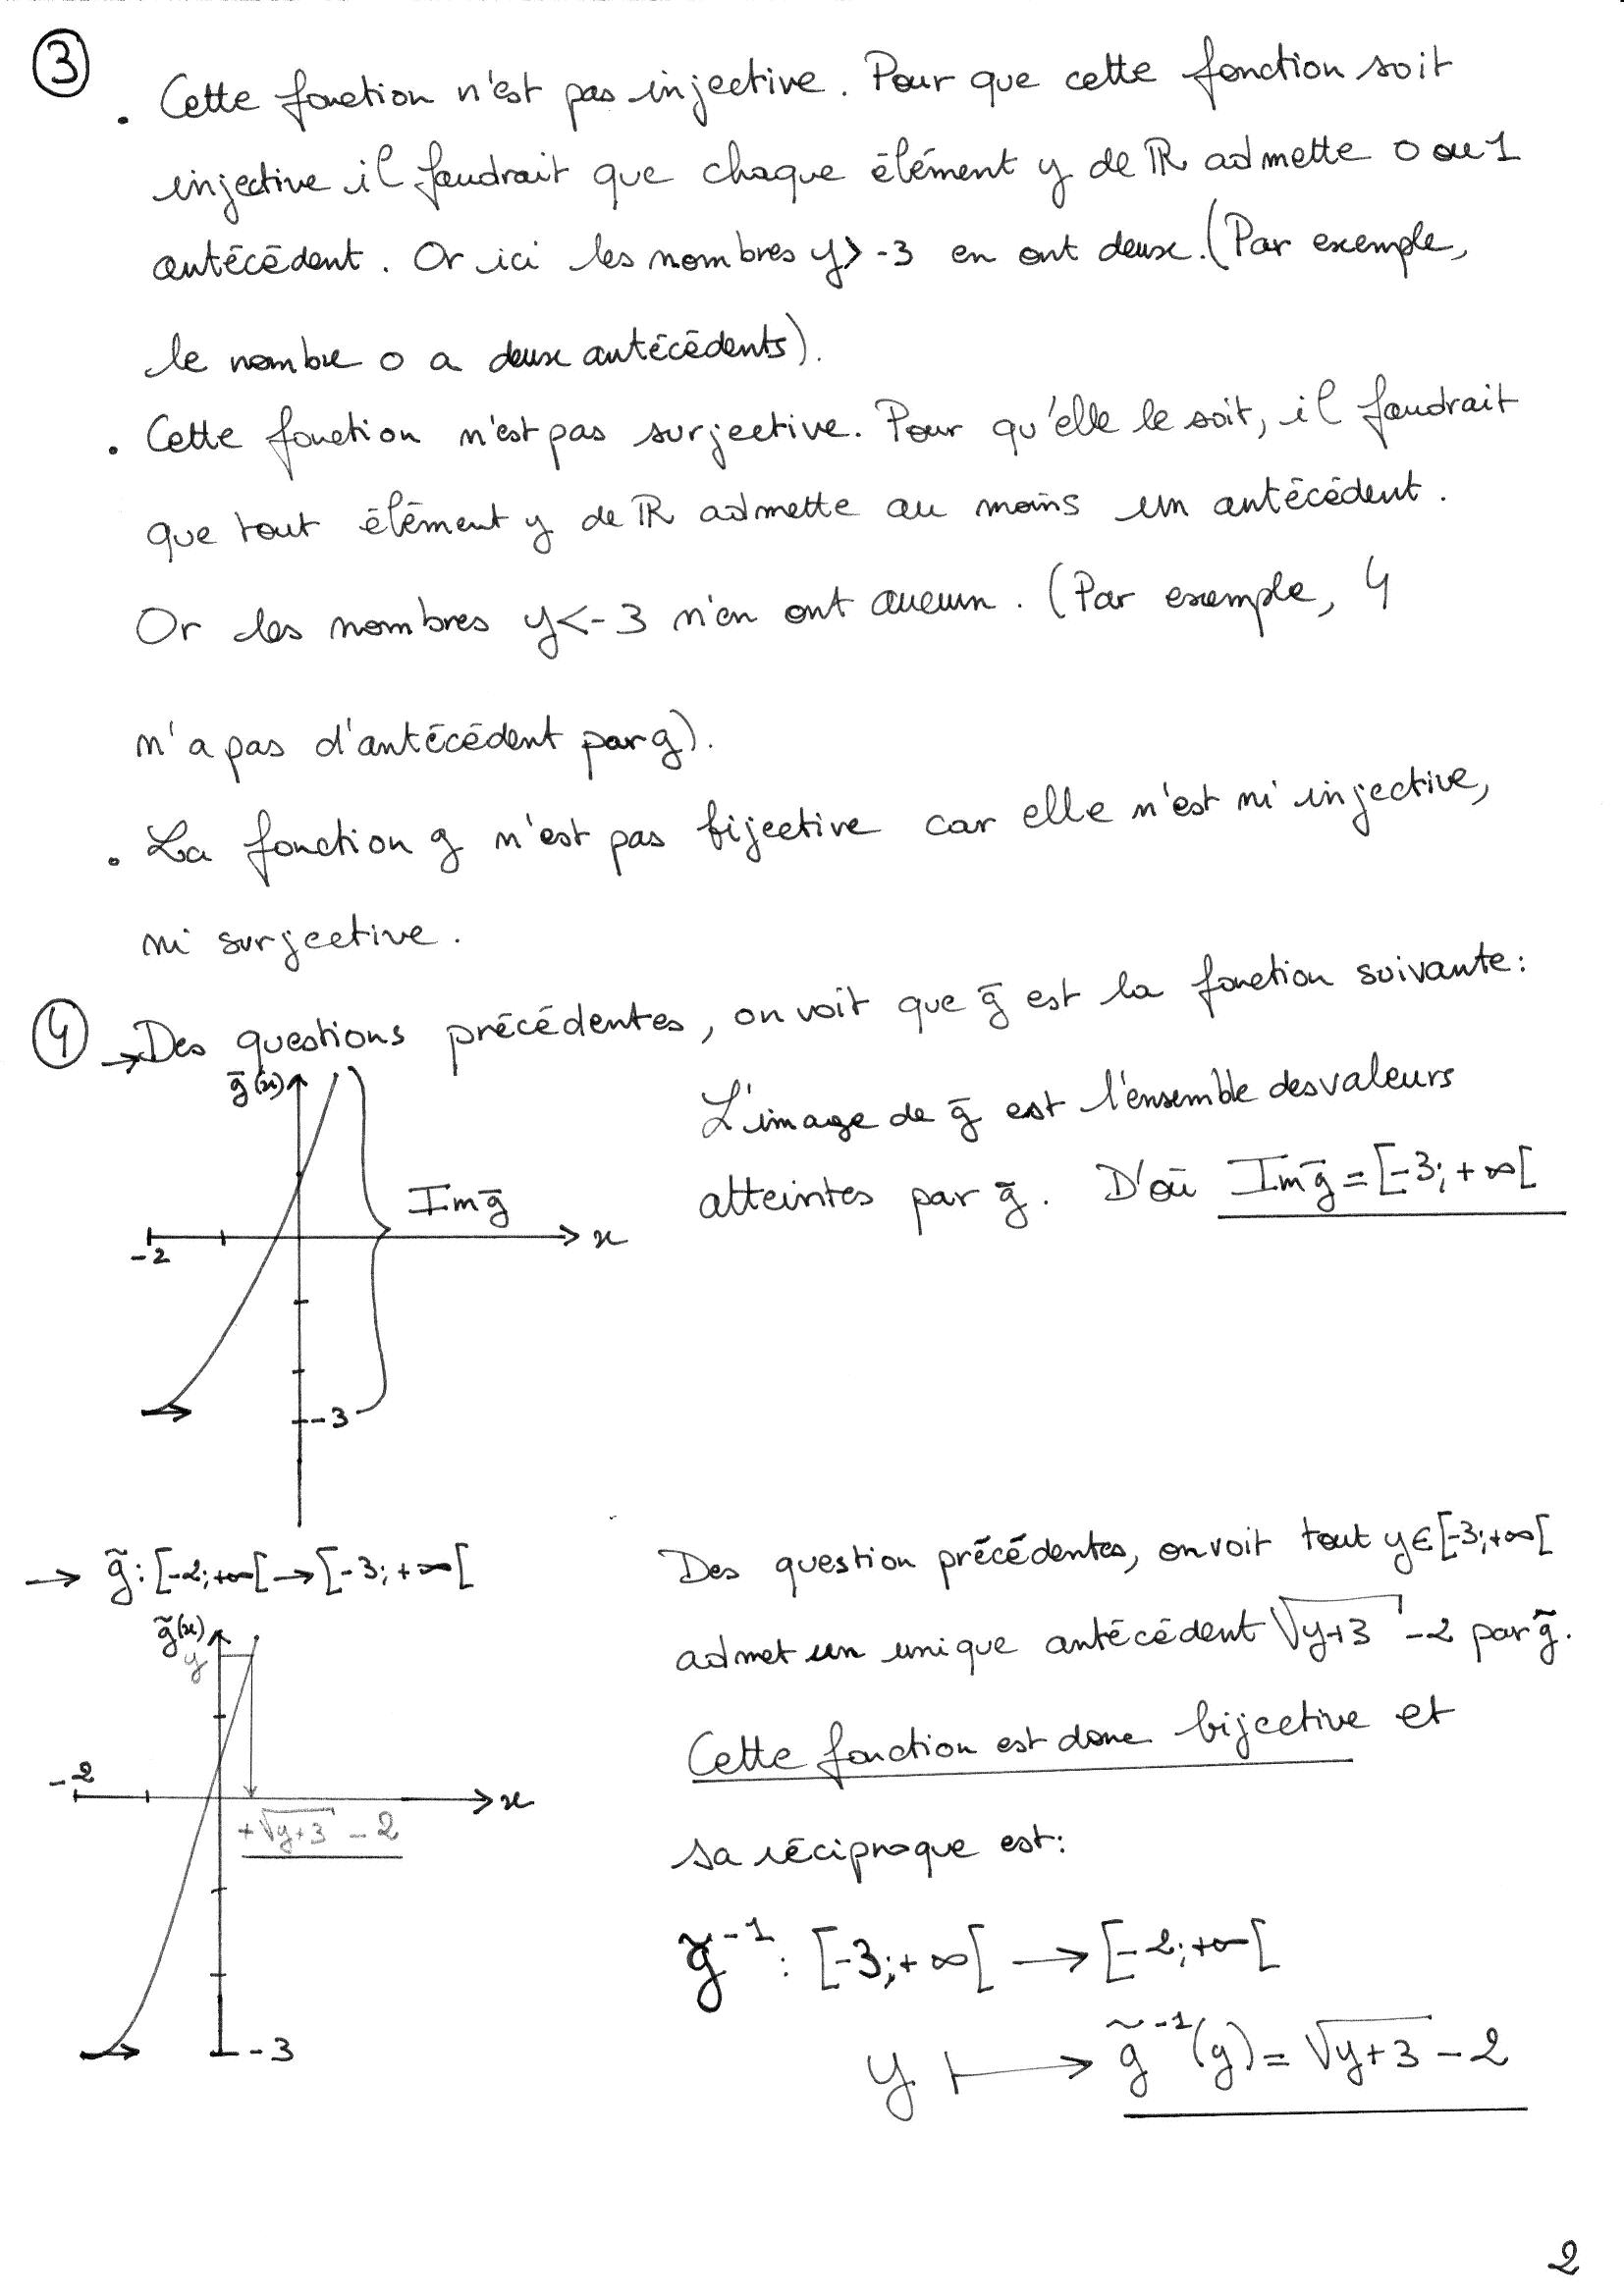 ③
. Cette fonction n'est pas injective. Pour que cette fonction soit
injective il faudrait que chaque élément y de ℝ admette 0 ou 1
antécédent. Or ici les nombres y > -3 en ont deux. (Par exemple,
le nombre 0 a deux antécédents).
. Cette fonction n'est pas surjective. Pour qu'elle le soit, il faudrait
que tout élément y de ℝ admette au moins un antécédent.
Or les nombres y < -3 n'en ont aucun. (Par exemple, 4
n'a pas d'antécédent par g).
. La fonction g n'est pas bijective car elle n'est ni injective,
ni surjective.
④ → Des questions précédentes, on voit que ḡ est la fonction suivante:
ḡ(x)
Im ḡ
x
-2
-3
L'image de ḡ est l'ensemble des valeurs
atteintes par ḡ. D'où Im ḡ = [-3; +∞[
→ g̃ : [-2; +∞[ → [-3; +∞[
g̃(x)
y
-2
x
+√(y+3) - 2
-3
Des question précédentes, on voit tout y ∈ [-3; +∞[
admet un unique antécédent √(y+3) - 2 par g̃.
Cette fonction est donc bijective et
sa réciproque est:
g̃⁻¹ : [-3; +∞[ → [-2; +∞[
y ⟼ g̃⁻¹(y) = √(y+3) - 2
2